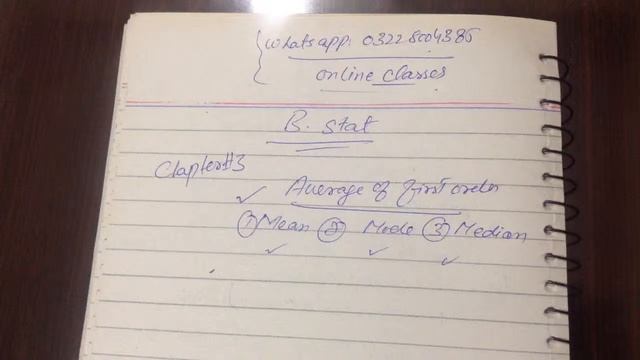 Whatsapp: 03228004385
online classes
B. Stat
Chapter#3
Average of first order
① Mean ② Mode ③ Median